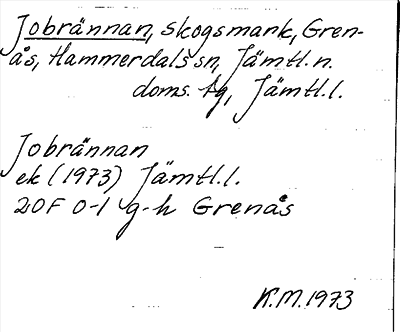 Jobrännan, skogsmark, Gren-
ås, Hammerdals sn, Jämtl. n.
doms. tg, Jämtl. l.
Jobrännan
ek (1973) Jämtl. l.
20F 0-1 g-h Grenås
K.M. 1973